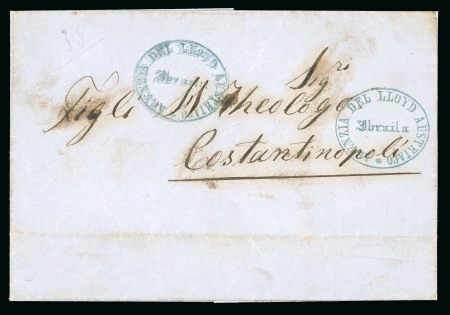 38
AGENZIA DEL LLOYD AUSTRIACO
Ibraila
Sigri
Figli M Theologo
Costantinopoli
AGENZIA DEL LLOYD AUSTRIACO
Ibraila